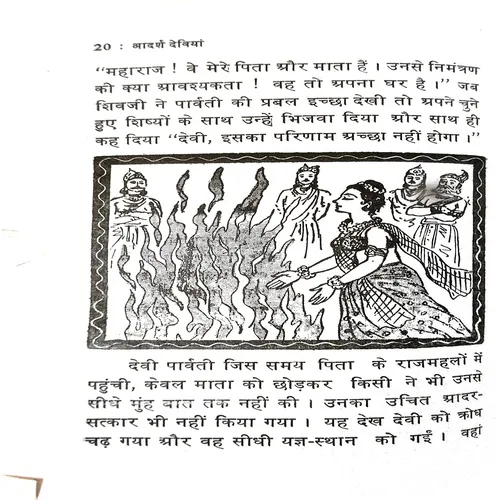 20 : आदर्श देवियां
“महाराज ! वे मेरे पिता और माता हैं । उनसे निमंत्रण
की क्या आवश्यकता ! वह तो अपना घर है ।” जब
शिवजी ने पार्वती की प्रबल इच्छा देखी तो अपने चुने
हुए शिष्यों के साथ उन्हें भिजवा दिया और साथ ही
कह दिया “देवी, इसका परिणाम अच्छा नहीं होगा ।”
देवी पार्वती जिस समय पिता के राजमहलों में
पहुंची, केवल माता को छोड़कर किसी ने भी उनसे
सीधे मुंह बात तक नहीं की । उनका उचित आदर-
सत्कार भी नहीं किया गया । यह देख देवी को क्रोध
चढ़ गया और वह सीधी यज्ञ-स्थान को गईं । वहां